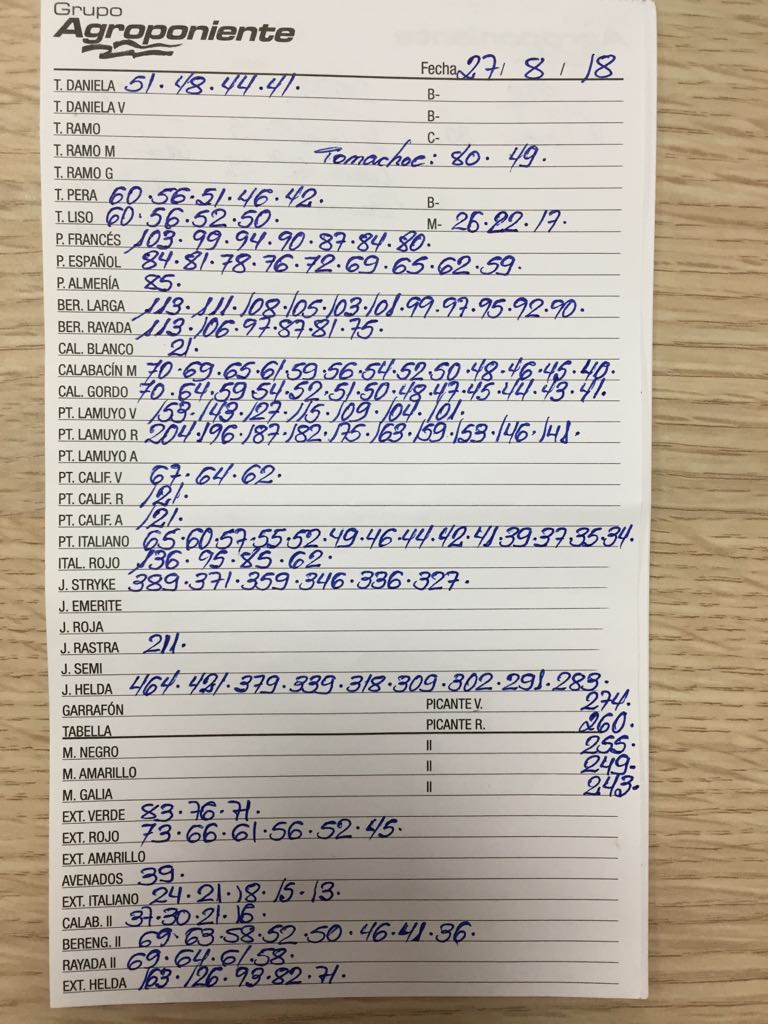 Grupo
Agroponiente
Fecha 27 / 8 / 18
T. DANELA 51. 48. 44. 41.
B-
T. DANIELA V
B-
T. RAMO
C-
T. RAMO M Tomachoc: 80. 49.
T. RAMO G
T. PERA 60.56.51.46.42. B-
T. LISO 60.56.52.50. M- 26.22.17.
P. FRANCÉS 103. 99. 94. 90. 87. 84. 80.
P. ESPAÑOL 84.81.78.76.72.69.65.62.59.
P. ALMERÍA 85.
BER. LARGA 113. 111. 108. 105. 103. 101. 99. 97. 95. 92. 90.
BER. RAYADA 113. 106. 97. 87. 81. 75.
CAL. BLANCO 21.
CALABACÍN M 70.69.65.61.59.56.54.52.50.48.46.45.40.
CAL. GORDO 70.64.59.54.52.51.50.48.47.45.44.43.41.
PT. LAMUYO V 153. 143. 127. 115. 109. 104. 101.
PT. LAMUYO R 204. 196. 187. 182. 175. 163. 159. 153. 146. 141.
PT. LAMUYO A
PT. CALIF. V 67. 64. 62.
PT. CALIF. R 121.
PT. CALIF. A 121.
PT. ITALIANO 65.60.57.55.52.49.46.44.42.41.39.37.35.34.
ITAL. ROJO 136. 95. 85. 62.
J. STRYKE 389. 371. 359. 346. 336. 327.
J. EMERITE
J. ROJA
J. RASTRA 211.
J. SEMI
J. HELDA 464. 421. 379. 339. 318. 309. 302. 291. 283.
GARRAFÓN PICANTE V. 274.
TABELLA PICANTE R. 260.
M. NEGRO II 255.
M. AMARILLO II 249.
M. GALIA II 243.
EXT. VERDE 83. 76. 71.
EXT. ROJO 73. 66. 61. 56. 52. 45.
EXT. AMARILLO
AVENADOS 39.
EXT. ITALIANO 24. 21. 18. 15. 13.
CALAB. II 37. 30. 21. 16.
BERENG. II 69. 63. 58. 52. 50. 46. 41. 36.
RAYADA II 69. 64. 61. 58.
EXT. HELDA 163. 126. 93. 82. 71.